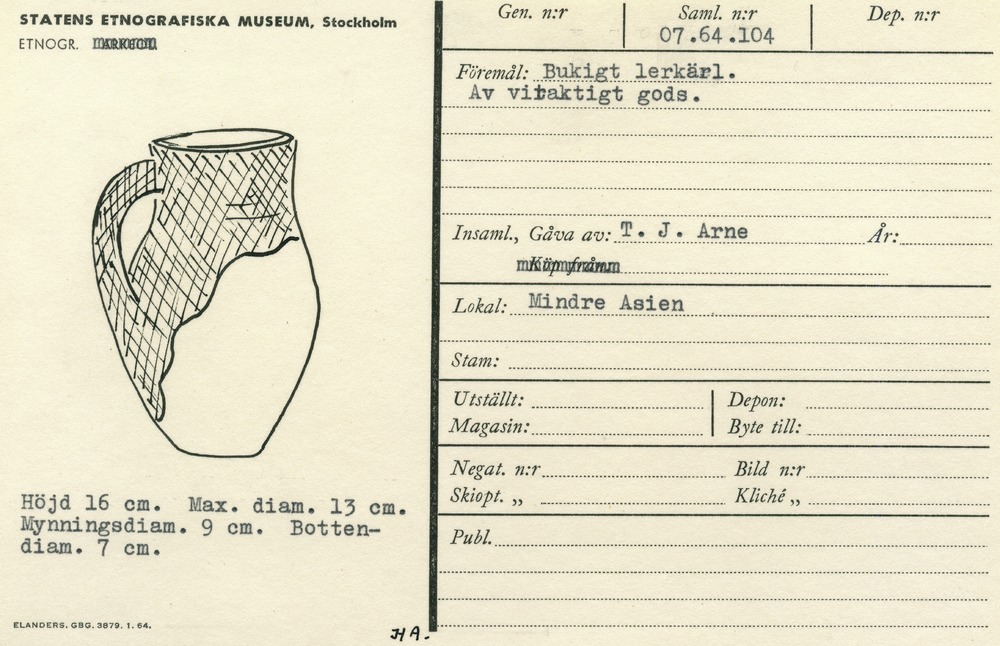 STATENS ETNOGRAFISKA MUSEUM, Stockholm
ETNOGR. ARKEOL.
Gen. n:r
Saml. n:r
07.64.104
Dep. n:r
Föremål: Bukigt lerkärl.
Av vitaktigt gods.
Insaml., Gåva av: T. J. Arne År:
Köp från
Lokal: Mindre Asien
Stam:
Utställt: Depon:
Magasin: Byte till:
Negat. n:r Bild n:r
Skiopt. „ Kliché „
Publ.
Höjd 16 cm. Max. diam. 13 cm.
Mynningsdiam. 9 cm. Botten-
diam. 7 cm.
ELANDERS. GBG. 3879. 1. 64.
HA.